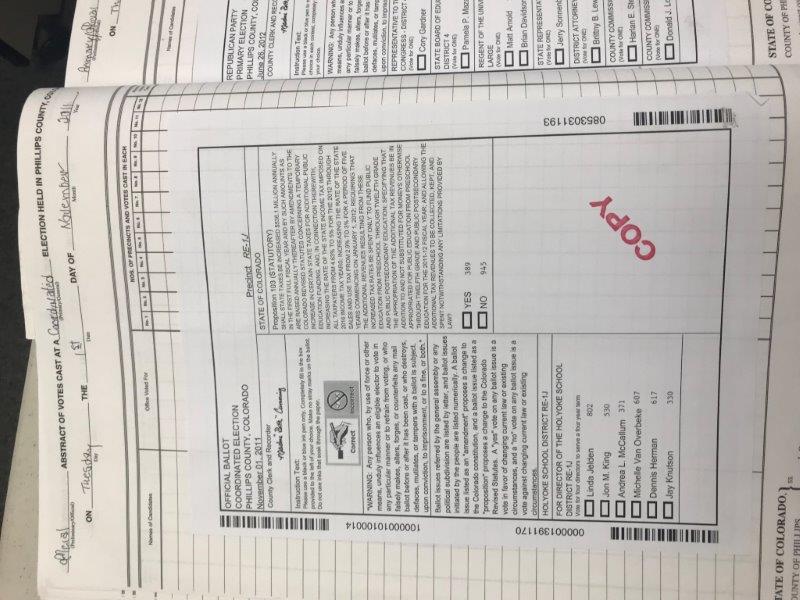 ABSTRACT OF VOTES CAST AT A Coordinated ELECTION HELD IN PHILLIPS COUNTY, CO
Official
(Preliminary/Official)
ON Tuesday THE 1st DAY OF November 2011
Day Date Month Year
NOS. OF PRECINCTS AND VOTES CAST IN EACH
Names of Candidates Office Voted For No. 1 No. 2 No. 3 No. 4 No. 5 No. 6 No. 7 No. 8 No. 9 No. 10 No. 11 No. 12
OFFICIAL BALLOT
COORDINATED ELECTION
PHILLIPS COUNTY, COLORADO
November 01, 2011
County Clerk and Recorder
Instruction Text:
Please use a black or blue ink pen only. Completely fill in the box
provided to the left of your choice. Make no stray marks on the ballot.
Do not use inks that soak through the paper.
correct
incorrect
"WARNING: Any person who, by use of force or other
means, unduly influences an eligible elector to vote in
any particular manner or to refrain from voting, or who
falsely makes, alters, forges, or counterfeits any mail
ballot before or after it has been cast, or who destroys,
defaces, mutilates, or tampers with a ballot is subject,
upon conviction, to imprisonment, or to a fine, or both."
Ballot issues referred by the general assembly or any
political subdivision are listed by letter, and ballot issues
initiated by the people are listed numerically. A ballot
issue listed as an "amendment" proposes a change to
the Colorado constitution, and a ballot issue listed as a
"proposition" proposes a change to the Colorado
Revised Statutes. A "yes" vote on any ballot issue is a
vote in favor of changing current law or existing
circumstances, and a "no" vote on any ballot issue is a
vote against changing current law or existing
circumstances.
HOLYOKE SCHOOL DISTRICT RE-1J
FOR DIRECTOR OF THE HOLYOKE SCHOOL
DISTRICT RE-1J
Vote for four directors to serve a four year term
Linda Jelden 802
Jon M. King 530
Andrea L. McCallum 371
Michelle Van Overbeke 607
Dennis Herman 617
Jay Knutson 330
Precinct RE-1J
STATE OF COLORADO
Proposition 103 (STATUTORY)
SHALL STATE TAXES BE INCREASED $536.1 MILLION ANNUALLY
IN THE FIRST FULL FISCAL YEAR AND BY SUCH AMOUNTS AS
ARE RAISED ANNUALLY THEREAFTER BY AMENDMENTS TO THE
COLORADO REVISED STATUTES CONCERNING A TEMPORARY
INCREASE IN CERTAIN STATE TAXES FOR ADDITIONAL PUBLIC
EDUCATION FUNDING, AND, IN CONNECTION THEREWITH,
INCREASING THE RATE OF THE STATE INCOME TAX IMPOSED ON
ALL TAXPAYERS FROM 4.63% TO 5% FOR THE 2012 THROUGH
2016 INCOME TAX YEARS; INCREASING THE RATE OF THE STATE
SALES AND USE TAX FROM 2.9% TO 3% FOR A PERIOD OF FIVE
YEARS COMMENCING ON JANUARY 1, 2012; REQUIRING THAT
THE ADDITIONAL REVENUES RESULTING FROM THESE
INCREASED TAX RATES BE SPENT ONLY TO FUND PUBLIC
EDUCATION FROM PRESCHOOL THROUGH TWELFTH GRADE
AND PUBLIC POSTSECONDARY EDUCATION; SPECIFYING THAT
THE APPROPRIATION OF THE ADDITIONAL TAX REVENUES BE IN
ADDITION TO AND NOT SUBSTITUTED FOR MONEYS OTHERWISE
APPROPRIATED FOR PUBLIC EDUCATION FROM PRESCHOOL
THROUGH TWELFTH GRADE AND PUBLIC POSTSECONDARY
EDUCATION FOR THE 2011-12 FISCAL YEAR; AND ALLOWING THE
ADDITIONAL TAX REVENUES TO BE COLLECTED, KEPT, AND
SPENT NOTWITHSTANDING ANY LIMITATIONS PROVIDED BY
LAW?
YES 389
NO 945
COPY
10000010100014
0000013911170
0853031193
STATE OF COLORADO,
COUNTY OF PHILLIPS
ss.
ON
Names of Candidates
REPUBLICAN PARTY
PRIMARY ELECTION
PHILLIPS COUNTY, CO
June 26, 2012
COUNTY CLERK AND REC
Instruction Text:
WARNING: Any
means, unduly influences a
any particular manner or to
falsely makes, alters, forges
ballot before or after it has
defaces, mutilates, or tamp
upon conviction, to impris
REPRESENTATIVE TO T
CONGRESS - DISTRICT 4
(Vote for ONE)
Cory Gardner
STATE BOARD OF EDUC
DISTRICT 4
(Vote for ONE)
Pamela P. Maz
REGENT OF THE UNIV
LARGE
(Vote for ONE)
Matt Arnold
Brian Davidson
STATE REPRESENTA
(Vote for ONE)
Jerry Sonnenb
DISTRICT ATTORNEY
(Vote for ONE)
Brittny B. Lew
COUNTY COMMISSI
(Vote for ONE)
Harlan E. Ste
COUNTY COMMIS
(Vote for ONE)
Donald J. Lo
STATE OF CO
COUNTY OF PH